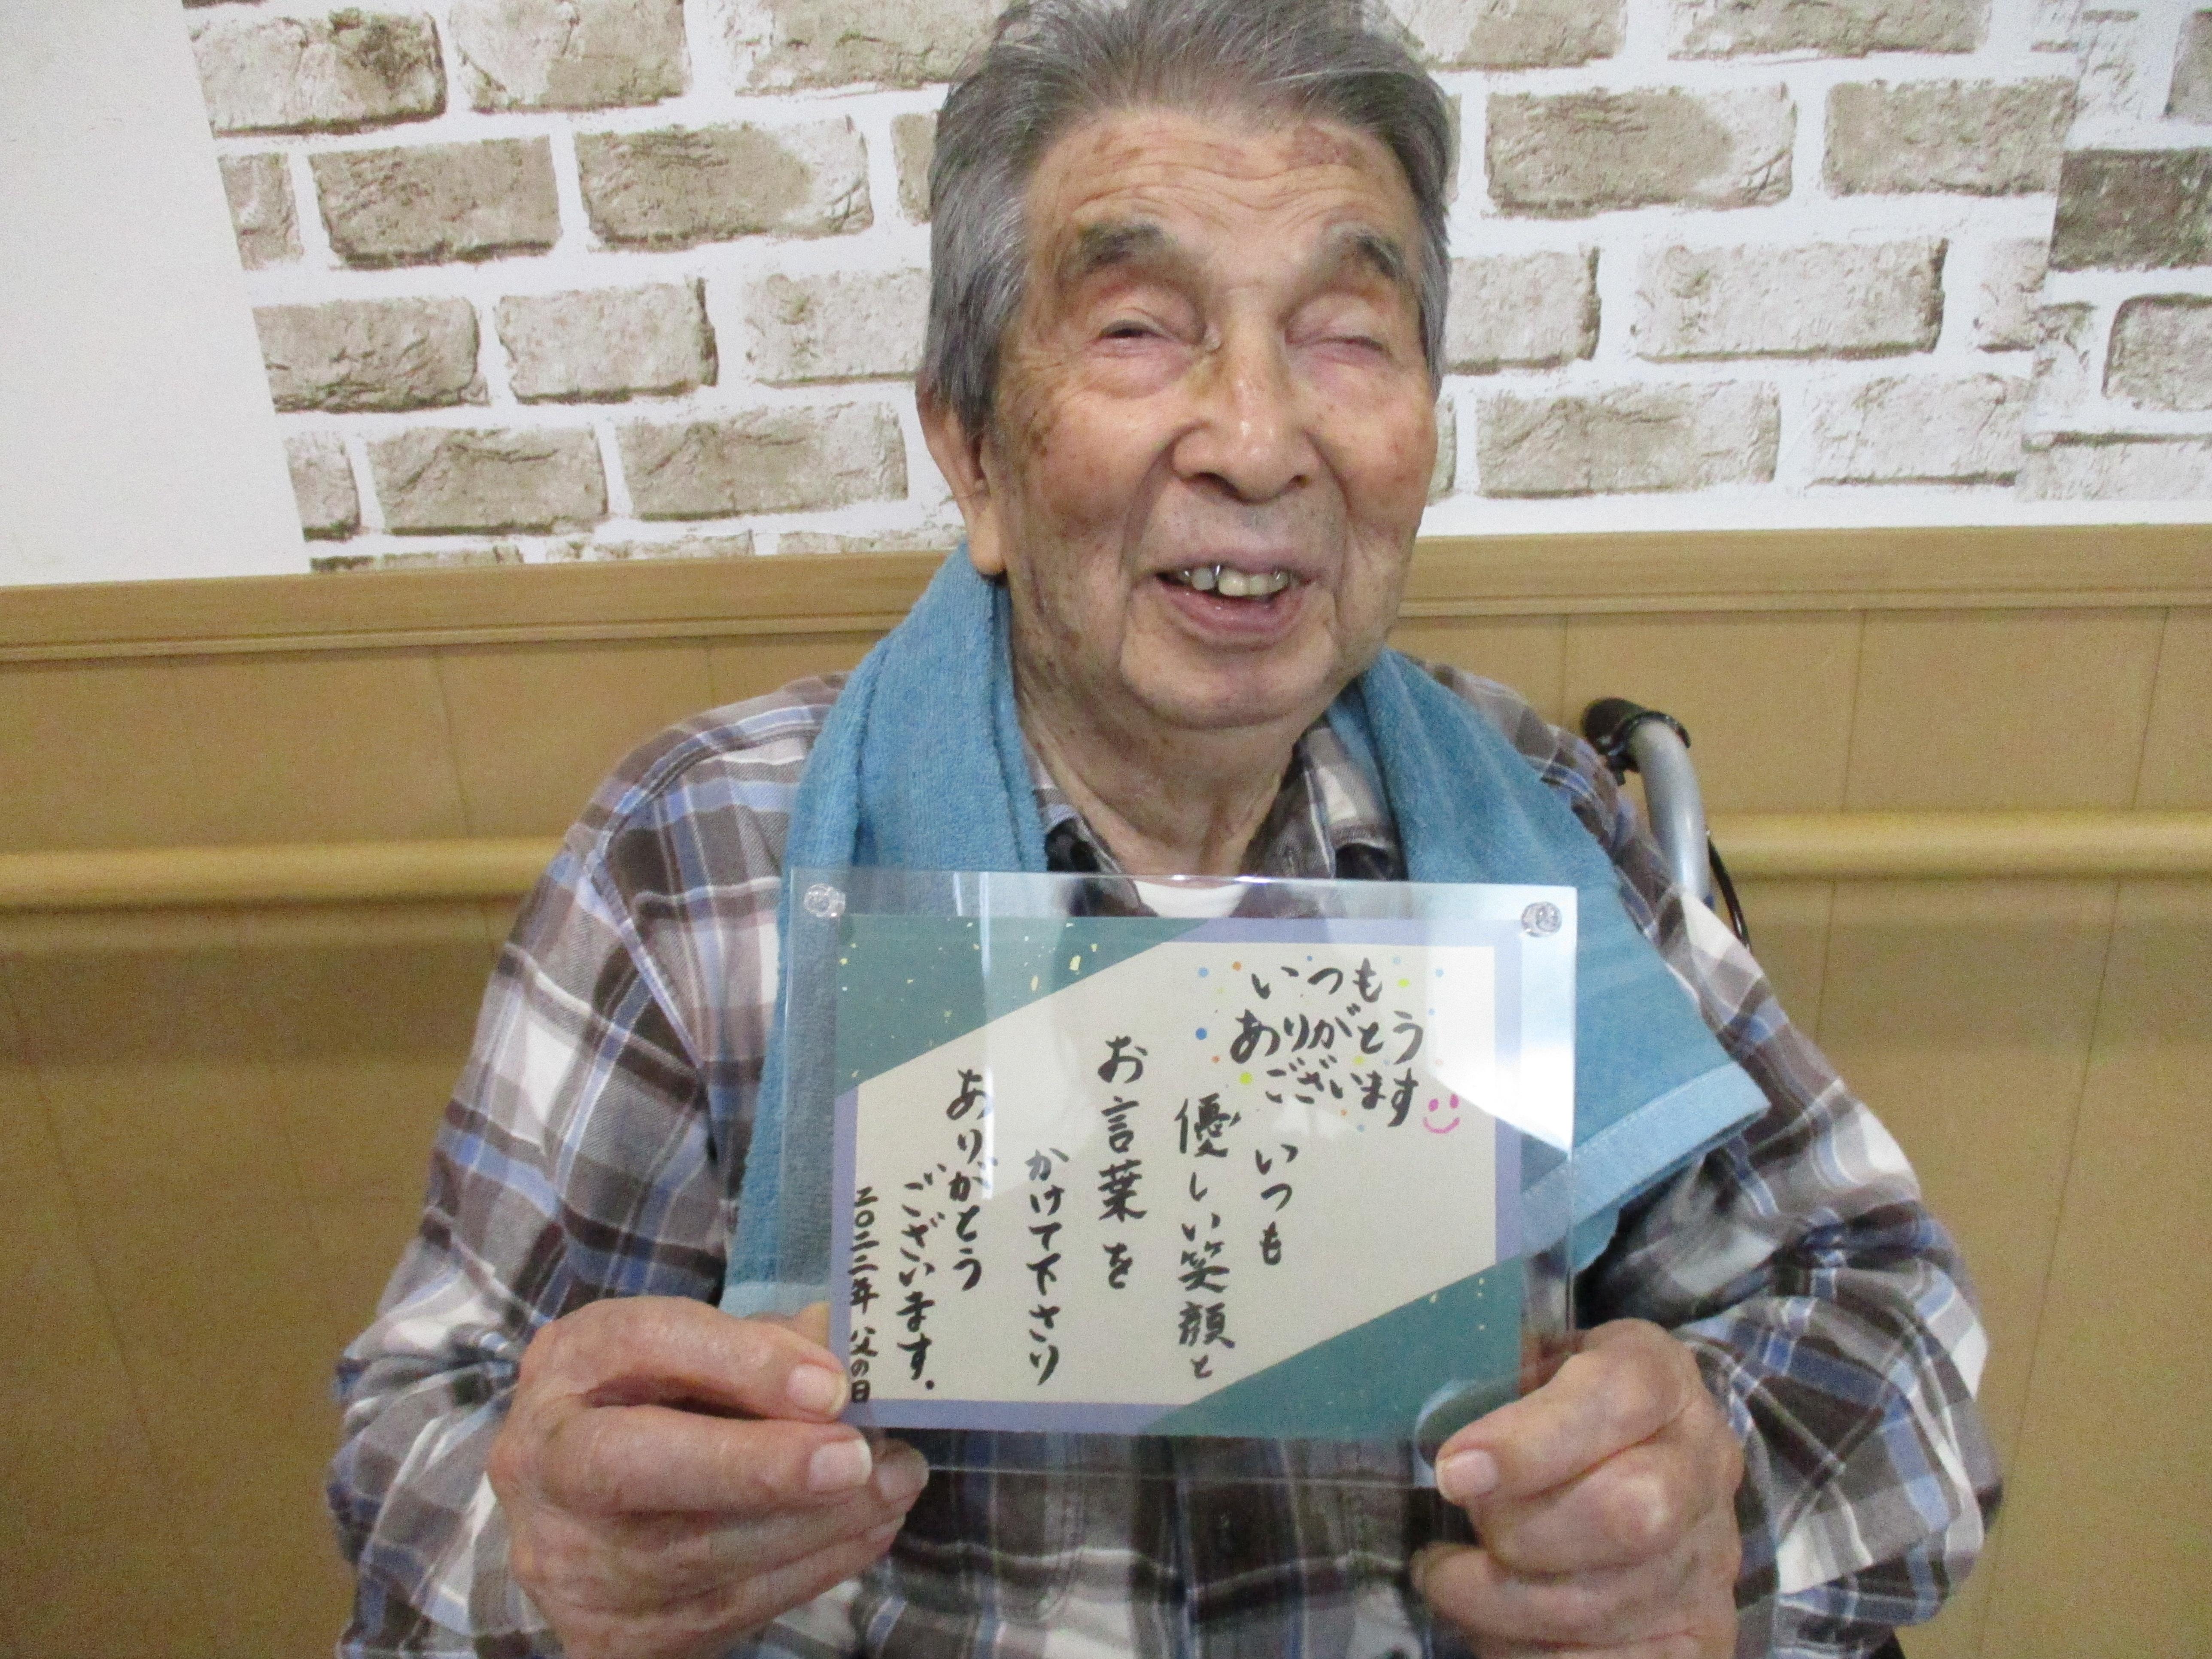 いつも
ありがとう
ございます
いつも
優しい笑顔と
お言葉を
かけて下さり
ありがとう
ございます.
二〇二二年 父の日